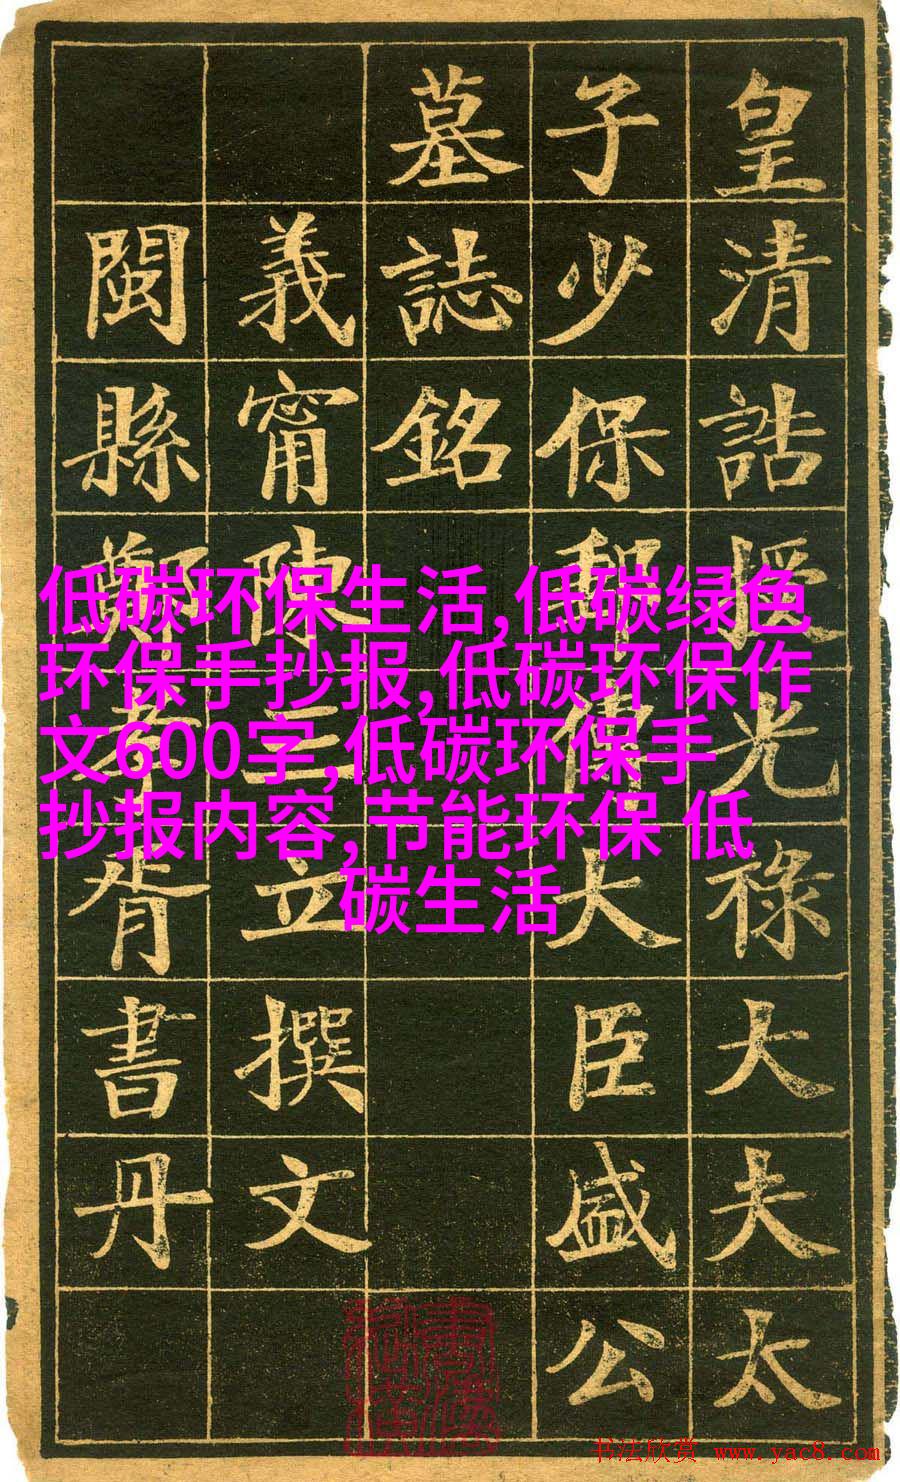 皇清誥授光祿大夫太
子少保郵傳大臣盛公
墓誌銘
義甯陳三立撰文
閩縣鄭孝胥書丹
低碳环保生活,低碳绿色
环保手抄报,低碳环保作
文600字,低碳环保手
抄报内容,节能环保 低
碳生活
书法欣赏 www.yac8.com